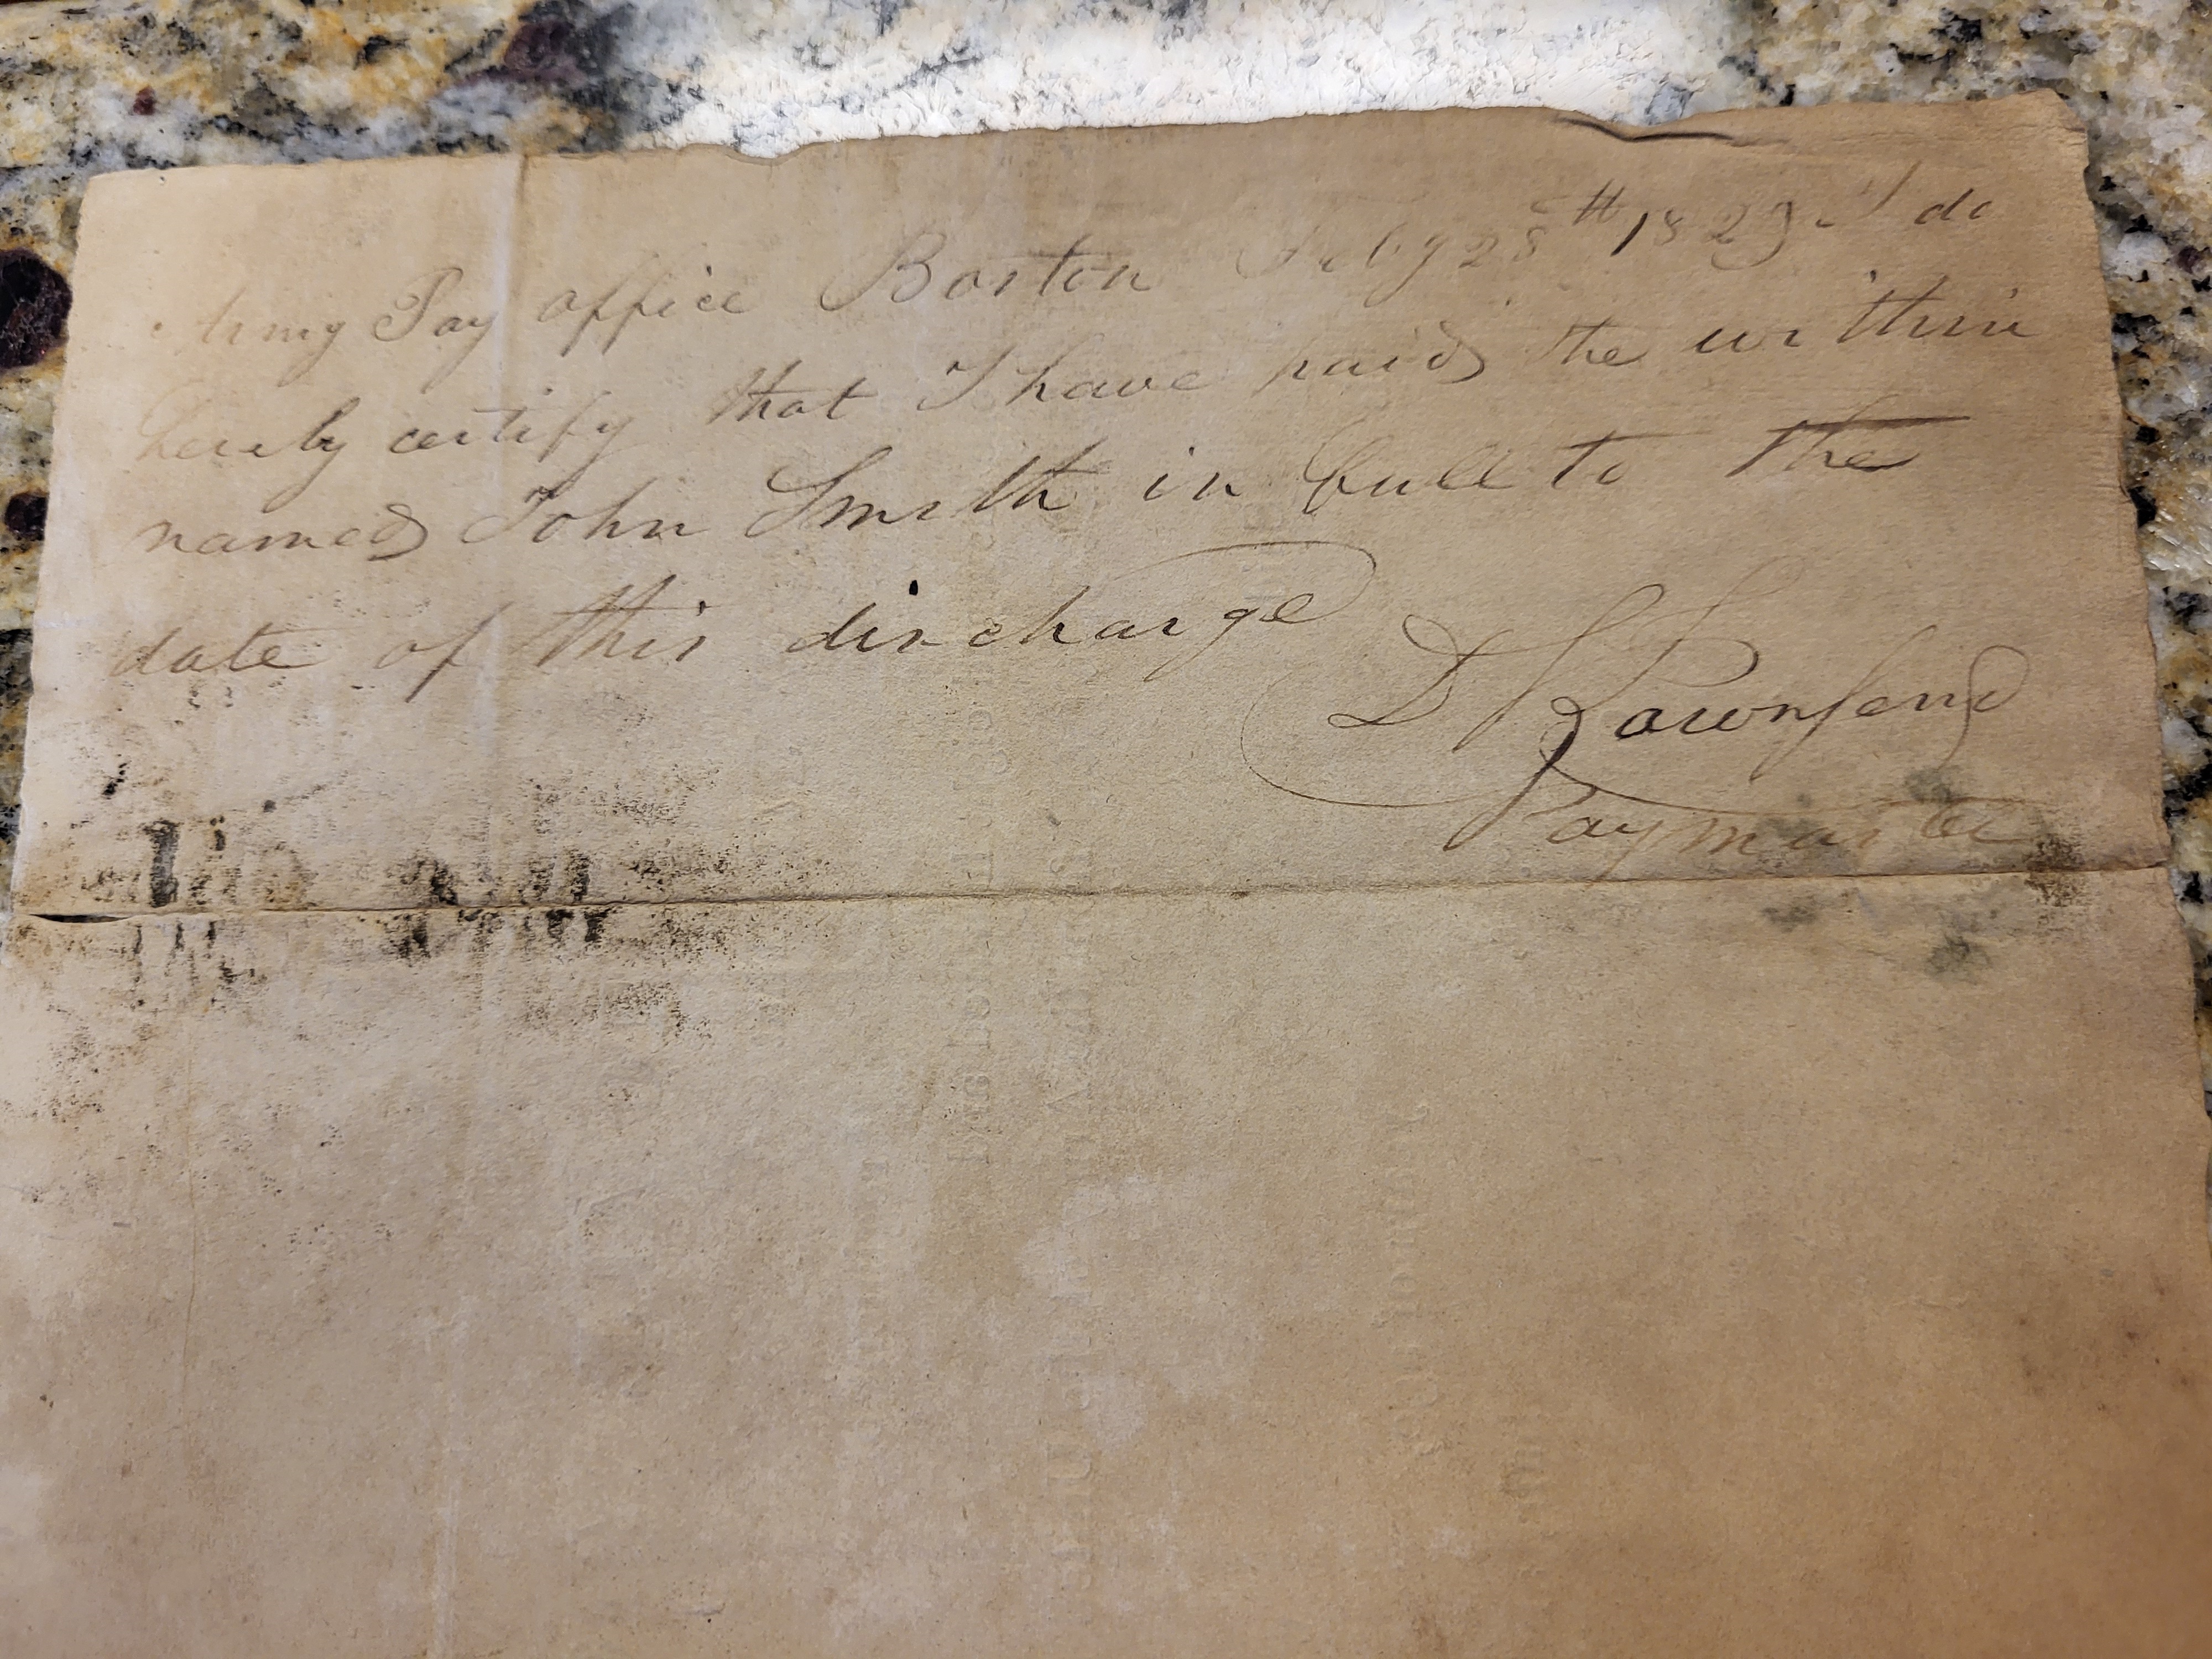 Army Pay office Boston Feby 28th 1829 I do
hereby certify that I have paid the within
named John Smith in full to the
date of this discharge
D S Townsend
Paymaster